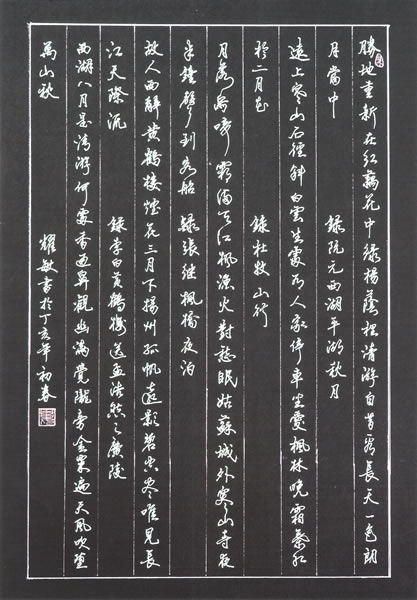 勝地重新在紅藕花中綠楊蔭裡清游自昔看長天一色朗
月當中 錄阮元西湖平湖秋月
遠上寒山石徑斜白雲生處有人家停車坐愛楓林晚霜葉紅
於二月花 錄杜牧山行
月落烏啼霜滿天江楓漁火對愁眠姑蘇城外寒山寺夜
半鐘聲到客船 錄張繼楓橋夜泊
故人西辭黃鶴樓煙花三月下揚州孤帆遠影碧空盡唯見長
江天際流 錄李白黃鶴樓送孟浩然之廣陵
西湖八月足清游何處香通鼻觀幽滿覺隴旁金粟遍天風吹墮
萬山秋 耀敏書於丁亥年初春